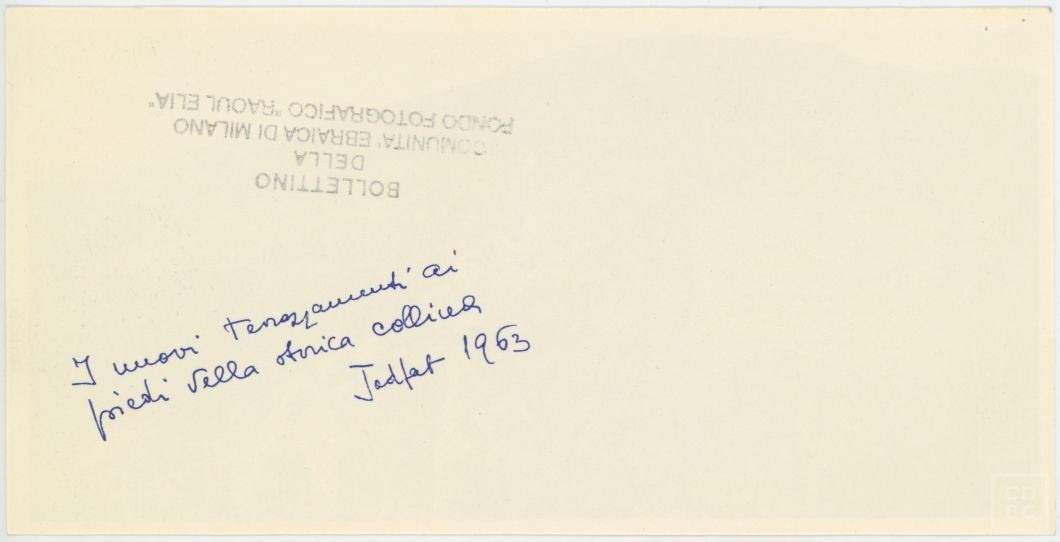 BOLLETTINO
DELLA
COMUNITA' EBRAICA DI MILANO
FONDO FOTOGRAFICO "RAOUL ELIA"
I nuovi terrazzamenti ai
piedi della storica collina
Jodfat 1963
CD
EC